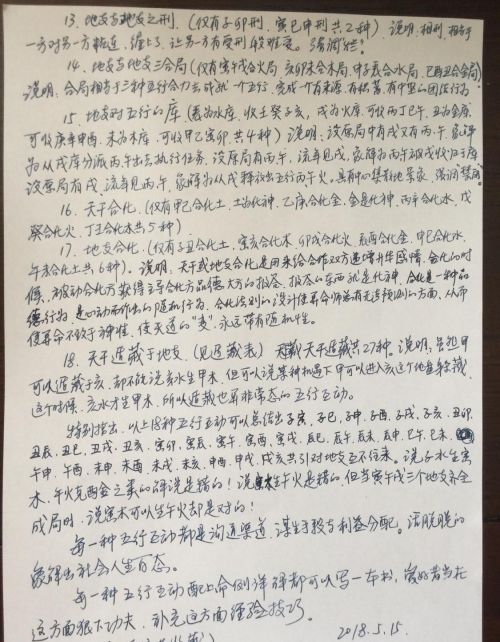 13. 地支与地支之刑. (仅有子卯刑, 寅巳申刑共2种) 说明: 相刑, 相当于
一方对另一方粘连, 缠上了, 让另一方有受刑般难受. 强调
14. 地支与地支三合局 (仅有寅午戌合火局, 亥卯未合木局, 申子辰合水局, 巳酉丑合金局)
说明: 合局相当于三种五行合力去成就一个五行, 完成一个有来源, 有 有中坚的团伙行为
15. 地支对五行的库 (辰为水库, 收壬癸子亥, 戌为火库, 可收丙丁巳午, 丑为金库,
可收庚辛申酉, 未为木库, 可收甲乙寅卯共4种) 说明: 设原局中有戌又有丙午, 象解
为从戌库分派丙午出去执行任务, 设原局有丙午, 流年见戌, 象解为丙午被戌收归于库,
设原局有戌, 流年见丙午, 象解为从戌释放出五行丙午火. 具有中 集散地景象, 强调禁用
16. 天干合化. (仅有甲己合化土, 土为化神, 乙庚合化金, 金是化神, 丙辛合化水, 戊
癸合化火, 丁壬合化木共5种)
17. 地支合化. (仅有子丑合化土, 寅亥合化木, 卯戌合化火, 辰酉合化金, 巳申合化水,
午未合化土共6种). 说明, 天干或地支合化是用来给合作双方递增升华感情, 合化的时
候, 被动合化方获得主导合化方品德大方的报答. 报答的东西就是化神, 合化是一种品
德行为 是 动而作出的随机行为, 合化法则的设计使算命师总有无法预测的方面, 从而
使算命不致于神准, 使天道的"麦"永远带有随机性.
18. 天干遁藏于地支. (见遁藏表) 天干遁藏共27种. 说明, 虽然甲
可以遁藏于亥, 却不能说亥水生甲木, 但可以说某种机遇下甲可以进入亥这个地支躲藏
这个时候, 亥水才生甲木, 所以遁藏也算非常态的五行互动.
特别指出, 以上18种五行互动可以总结出子寅、子巳、子申、子酉、子戌、子亥、丑卯
丑辰、丑巳、丑戌、丑亥、寅卯、寅辰、寅午、寅酉、寅戌、辰巳、辰午、辰未、辰申、巳午、巳未、
午申、午酉、未申、未酉、未戌、未亥、申酉、申戌、戌亥共31对地支互不往来。说子水生寅
木、午火克酉金之类的解说是错的! 说寅木生午火是错的, 但当寅午戌三个地支齐全
成局时, 说寅木可以生午火却是对的!
每一种五行互动都是沟通渠道, 谋生手段与利益分配。活脱脱的
象解出社会人生百态。
每一种五行互动配上命例详解都可以写一本书, 爱好者当在
这方面狠下功夫, 补充这方面经验技巧。
2018.5.15